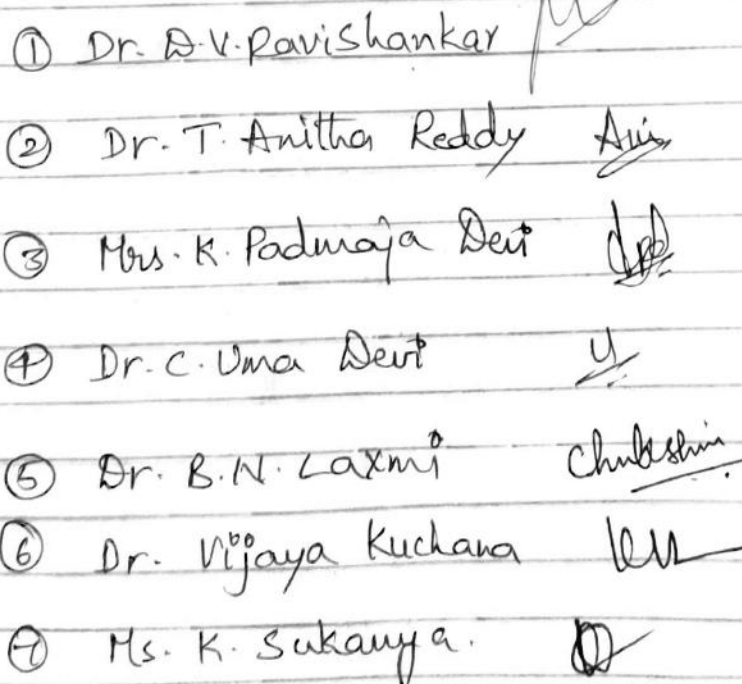 ① Dr. D.V. Ravishankar
② Dr. T. Anitha Reddy Ani
③ Mrs. K. Padmaja Devi
④ Dr. C. Uma Devi U
⑤ Dr. B.N. Laxmi
⑥ Dr. Vijaya Kuchana
⑦ Ms. K. Sukanya.